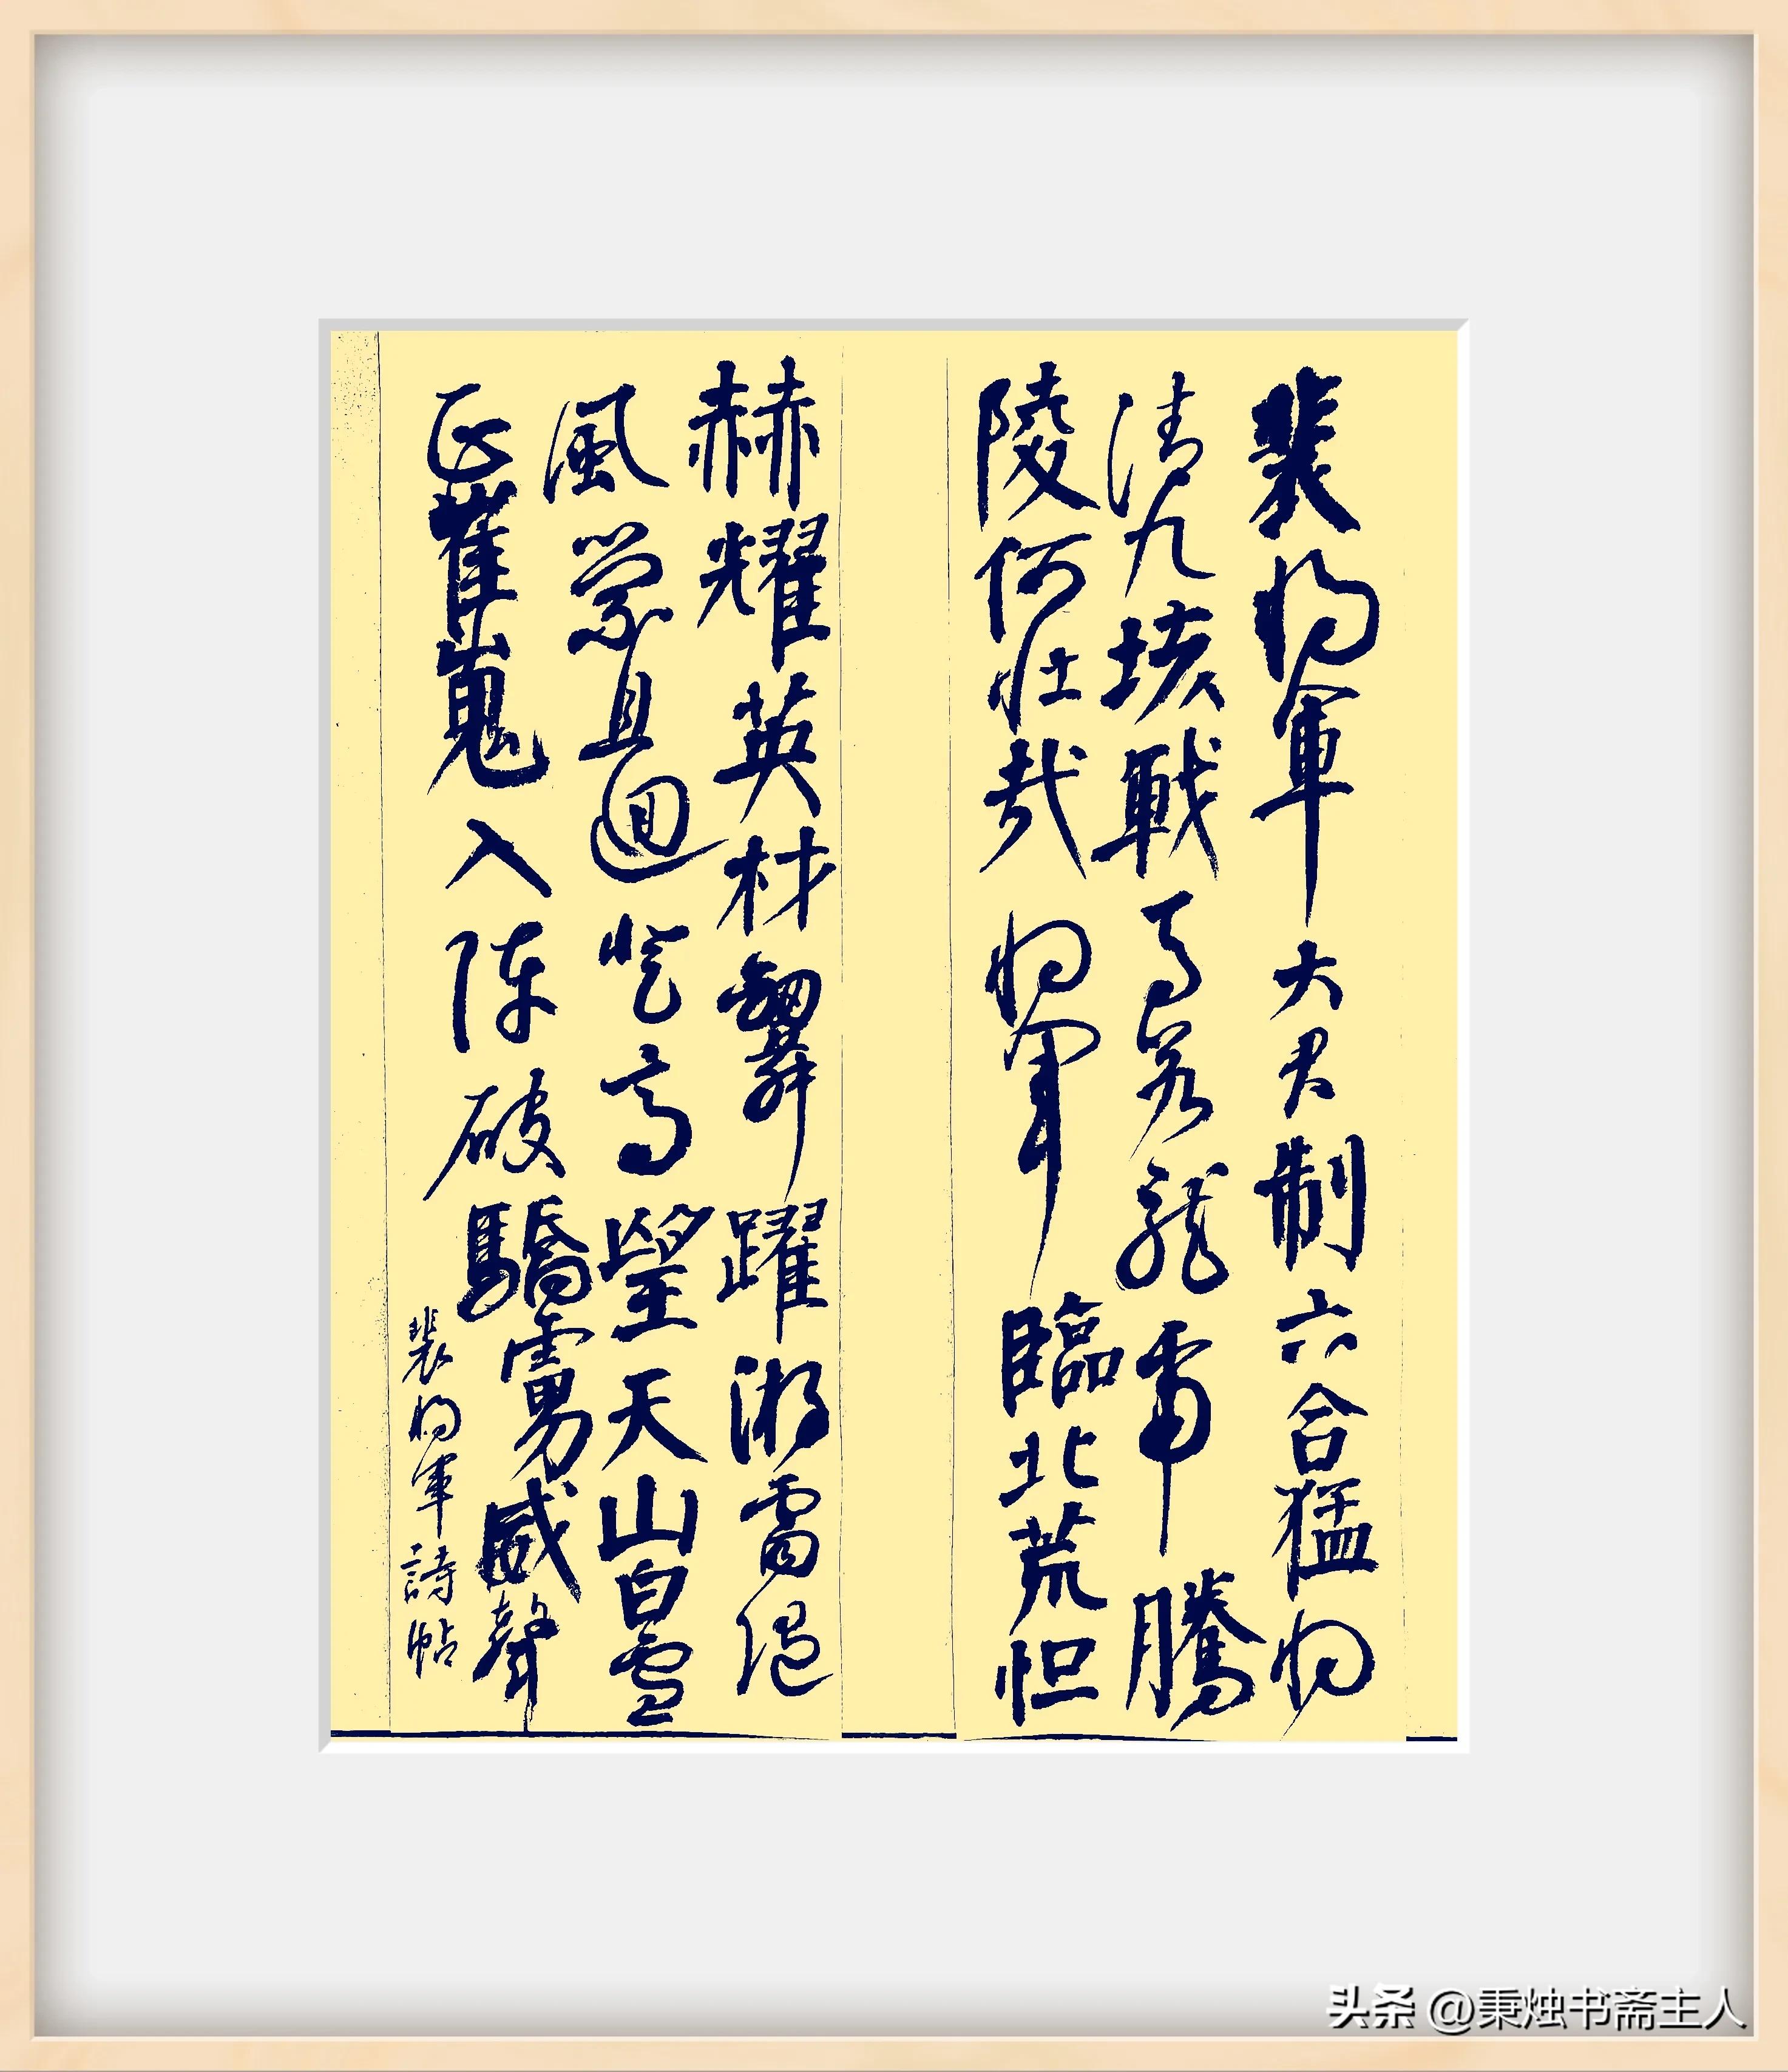 裴将軍大君制六合猛将
清九垓戰馬若龍虎騰
陵何壯哉將軍臨北荒恒
赫耀英材劍舞躍游雷随
風縈且迴登高望天山白雪
正崔嵬入陣破驕虜威聲
裴将軍詩帖
头条 @秉烛书斋主人